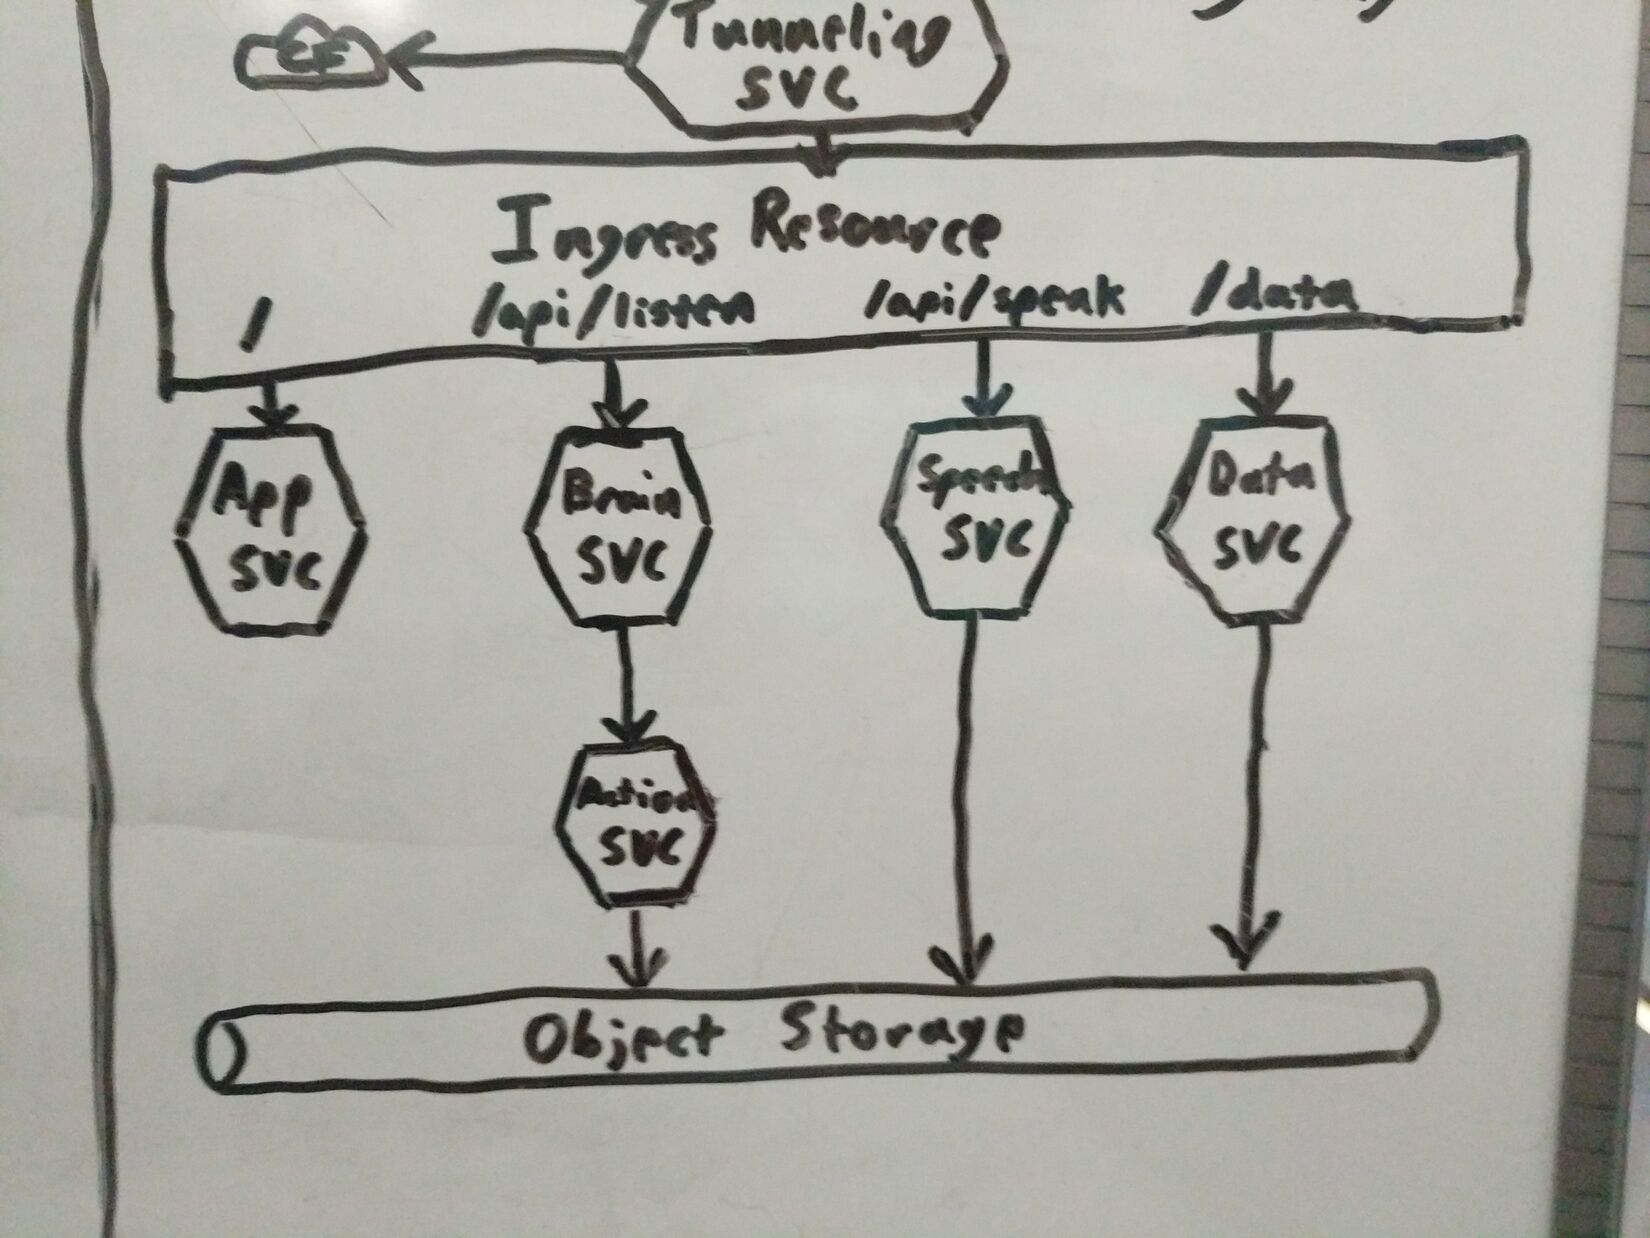 CF
Tunneling
SVC
Ingress Resource
/
/api/listen
/api/speak
/data
App
SVC
Brain
SVC
Speech
SVC
Data
SVC
Action
SVC
Object Storage